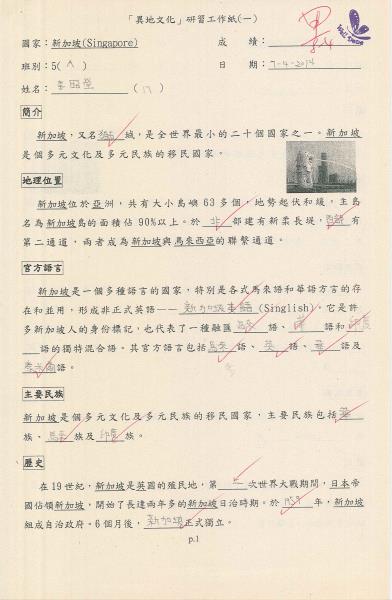 「異地文化」研習工作紙(一)
國家：新加坡(Singapore) 成 績：
班別：5( A ) 日 期：7-4-2014
姓名： ( 17 )
簡介
新加坡，又名獅城，是全世界最小的二十個國家之一。新加坡
是個多元文化及多元民族的移民國家。
地理位置
新加坡位於亞洲，共有大小島嶼 63 多個，地勢起伏和緩，主島
名為新加坡島的面積佔 90%以上。於 北 部建有新柔長堤，西部有
第二通道，兩者成為新加坡與馬來西亞的聯繫通道。
官方語言
新加坡是一個多種語言的國家，特別是各式馬來語和華語方言的存
在和並用，形成非正式英語—— 新加坡英語 (Singlish)。它是許
多新加坡人的身份標記，也代表了一種融匯 馬來 語、 華 語和 印度
語的獨特混合語。其官方語言包括 馬來 語、 英 語、 華 語及
泰米爾語。
主要民族
新加坡是個多元文化及多元民族的移民國家，主要民族包括 華
族、 馬來 族及 印度 族。
歷史
在 19 世紀，新加坡是英國的殖民地，第 二 次世界大戰期間，日本帝
國佔領新加坡，開始了長達兩年多的新加坡日治時期。於 1959 年，新加坡
組成自治政府。6 個月後， 新加坡 正式獨立。
p.1